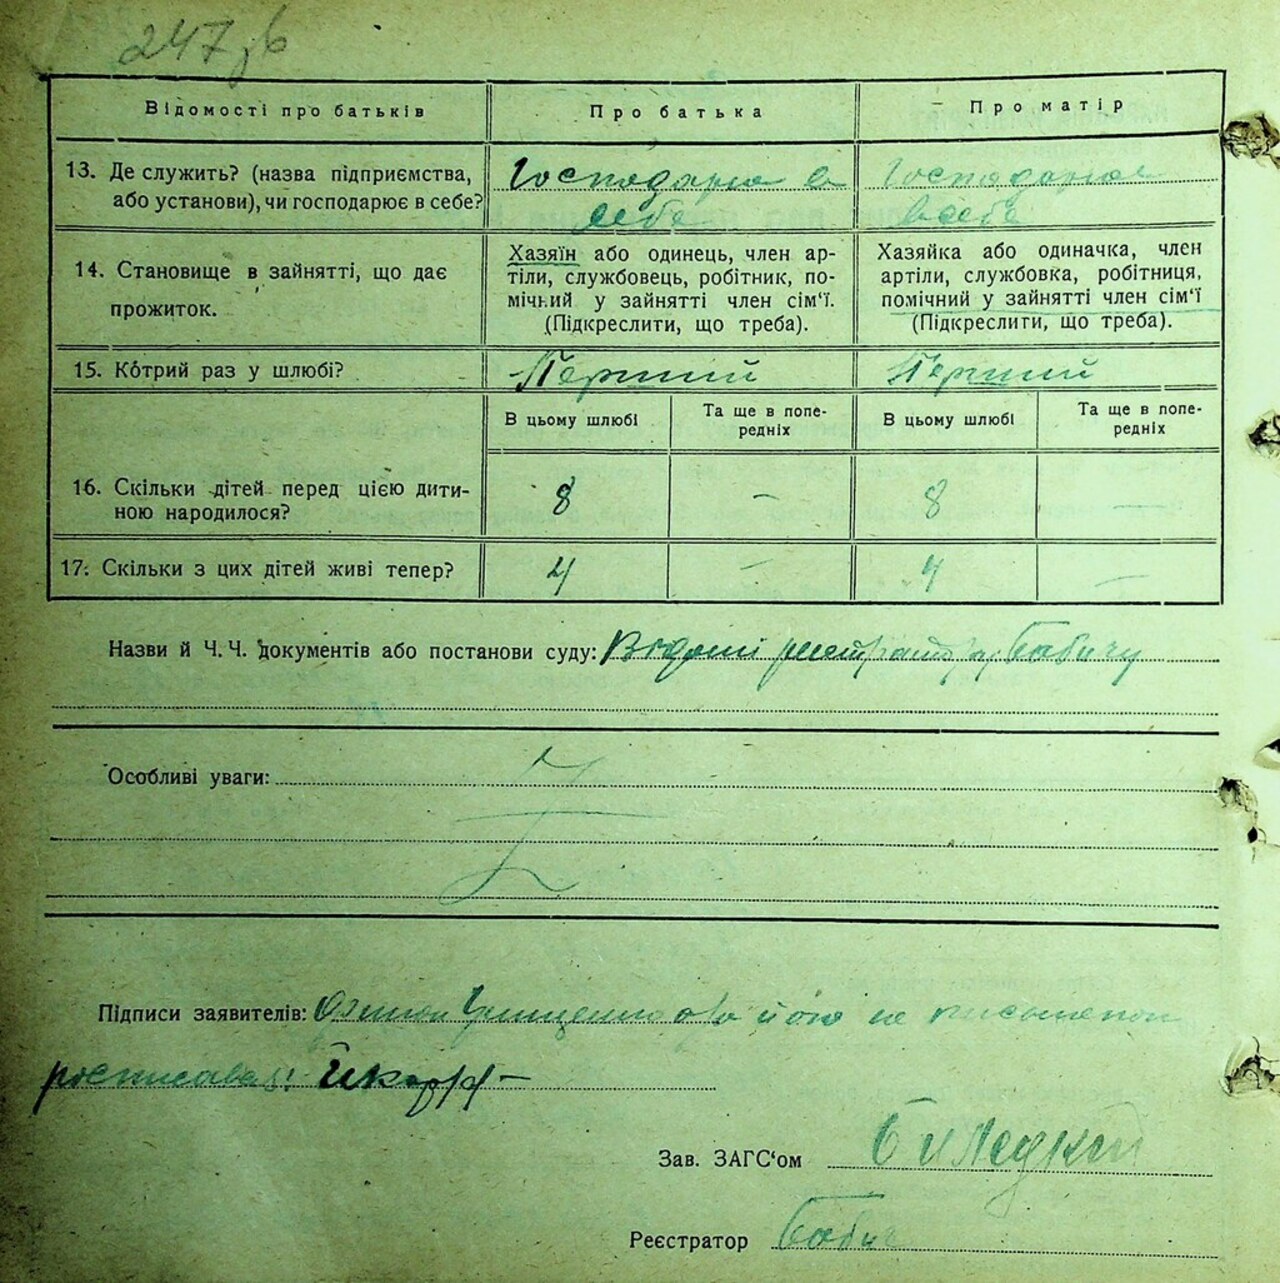 247зв
Відомості про батьків
Про батька
Про матір
13. Де служить? (назва підприємства,
або установи), чи господарює в себе?
Господарює в
себе
Господарює
в себе
14. Становище в зайнятті, що дає
прожиток.
Хазяїн або одинець, член ар-
тіли, службовець, робітник, по-
мічний у зайнятті член сім'ї.
(Підкреслити, що треба).
Хазяйка або одиначка, член
артіли, службовка, робітниця,
помічний у зайнятті член сім'ї
(Підкреслити, що треба).
15. Котрий раз у шлюбі?
Перший
Перший
В цьому шлюбі
Та ще в попе-
редніх
В цьому шлюбі
Та ще в попе-
редніх
16. Скільки дітей перед цією дити-
ною народилося?
8
–
8
–
17. Скільки з цих дітей живі тепер?
4
–
4
–
Назви й Ч. Ч. документів або постанови суду: Відомі реєстратору Бабичу
Особливі уваги:
Підписи заявителів: Грищенко а за його не письменого
росписався
Зав. ЗАГС'ом Билецкий
Реєстратор Бабич